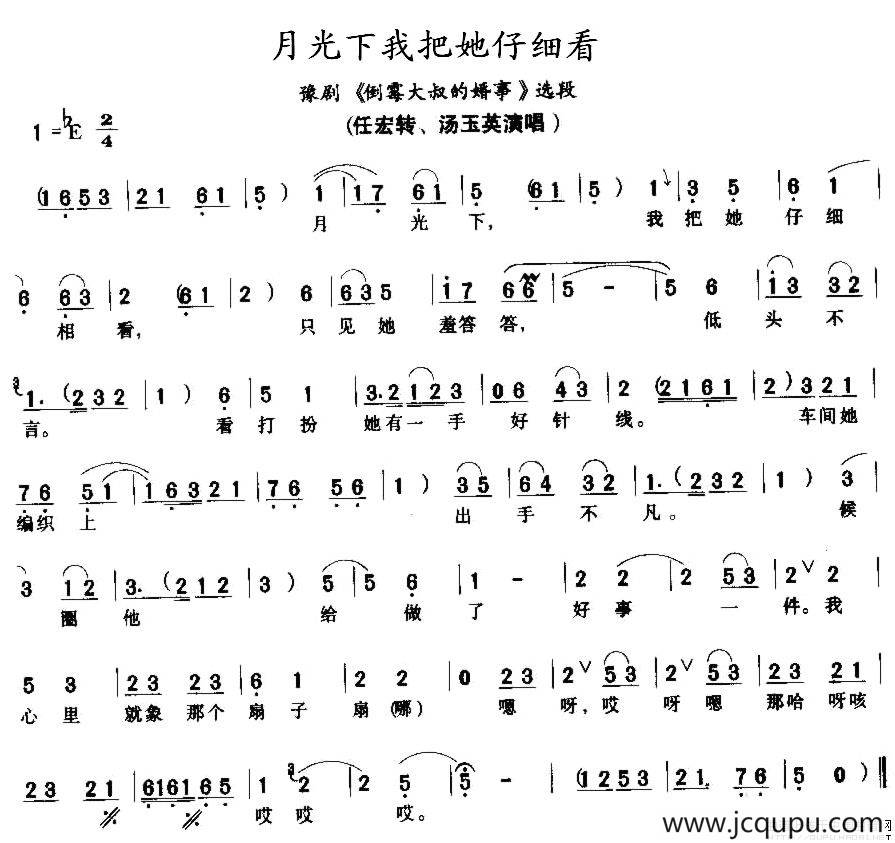 月光下我把她仔细看
豫剧《倒霉大叔的婚事》选段
(任宏转、汤玉英演唱)
1=♭E 2/4
(1653 | 21 61 | 5) | 1 | 17 61 | 5 (61 | 5) 1 | 3 5 | 6 1 |
月 光 下, 我 把 她 仔 细
6 63 | 2 (61 | 2) 6 | 635 | i7 66 | 5 - | 5 6 | i3 32 |
相 看, 只 见 她 羞答 答, 低 头 不
3 1. (232 | 1) 6 | 5 1 | 3.2 123 | 06 43 | 2 (2161 | 2) 321 |
言。 看 打 扮 她有一 手 好 针 线。 车间她
76 51 | 16321 | 76 56 | 1) 35 | 64 32 | 1. (232 | 1) 3 |
编织 上 出 手 不 凡。 候
3 12 | 3. (212 | 3) 5 | 5 6 | 1 - | 2 2 | 2 53 | 2 V 2 |
圈 他 给 做 了 好 事 一 件。我
5 3 | 23 23 | 6 1 | 2 2 | 0 23 | 2 V 53 | 2 V 53 | 23 21 |
心 里 就象 那个 扇 子 扇(哪) 嗯 呀,哎 呀 嗯 那哈 呀咳
23 21 | 616165 | 1 3 2 | 2 5 | 5 - | (1253 | 21. 76 | 5 0) ‖
哎 哎 哎。
www.jcqupu.com